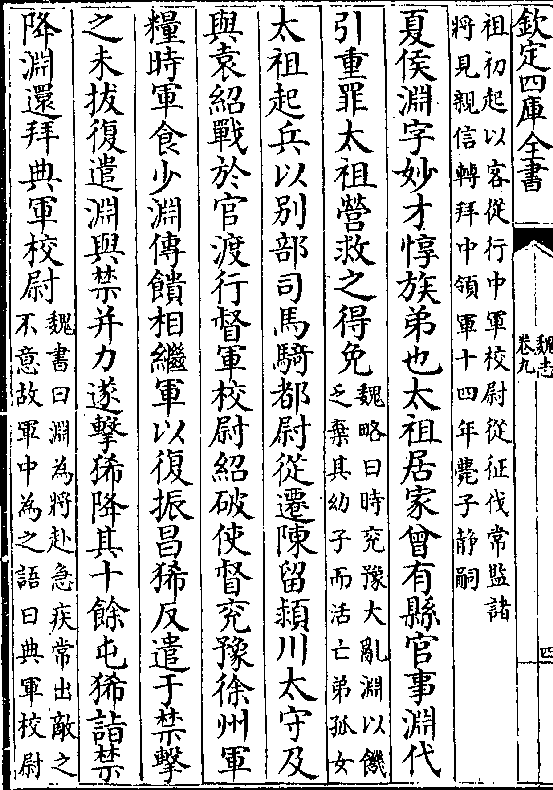 欽定四庫全書
魏志
卷九
四
祖初起以客從行中軍校尉從征伐常監諸
將見親信轉拜中領軍十四年薨子靜嗣
夏侯淵字妙才惇族弟也太祖居家曾有縣官事淵代
引重罪太祖營救之得免
魏略曰時兖豫大亂淵以饑
乏棄其幼子而活亡弟孤女
太祖起兵以别部司馬騎都尉從遷陳留潁川太守及
與袁紹戰於官渡行督軍校尉紹破使督兖豫徐州軍
糧時軍食少淵傳饋相繼軍以復振昌狶反遣于禁擊
之未拔復遣淵與禁并力遂擊狶降其十餘屯狶詣禁
降淵還拜典軍校尉
魏書曰淵為將赴急疾常出敵之
不意故軍中為之語曰典軍校尉